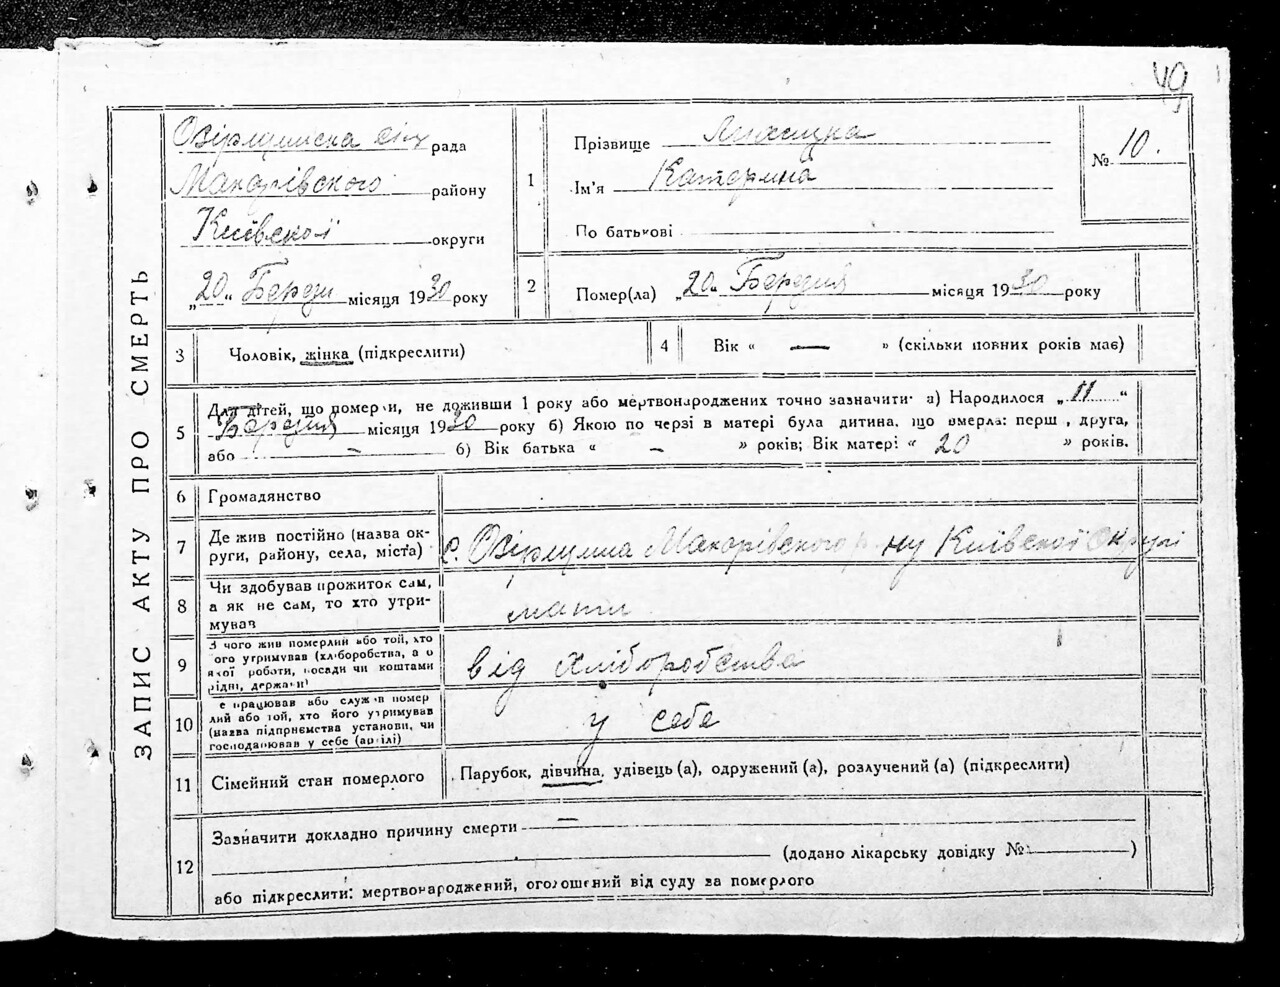 49
ЗАПИС АКТУ ПРО СМЕРТЬ
рада
Макарівського району
Київської округи
„20“ Березня місяця 1930 року
1
Прізвище
Ім'я Катерина
По батькові
№ 10.
2
Помер(ла) „20“ Березня місяця 1930 року
3
Чоловік, жінка (підкреслити)
4
Вік « — » (скільки повних років має)
5
Для дітей, що померли, не доживши 1 року або мертвонароджених точно зазначити: а) Народилося „11“
Березня місяця 1930 року б) Якою по черзі в матері була дитина, що вмерла: перш , друга,
або — б) Вік батька « — » років; Вік матері « 20 » років.
6
Громадянство
7
Де жив постійно (назва ок-
руги, району, села, міста)
с. Макарівського р-ну Київської Округи
8
Чи здобував прожиток сам,
а як не сам, то хто утри-
мував
мати
9
З чого жив померлий або той, хто
ого утримував (хліборобства, а о
якої роботи, посади чи коштами
рідні, держави)
від хліборобства
10
е працював або служив помер
лий або той, хто його утримував
(назва підприємства установи, чи
господарював у себе (артілі)
у себе
11
Сімейний стан померлого
Парубок, дівчина, удівець (а), одружений (а), розлучений (а) (підкреслити)
12
Зазначити докладно причину смерти —
(додано лікарську довідку № )
або підкреслити: мертвонароджений, оголошений від суду за померлого